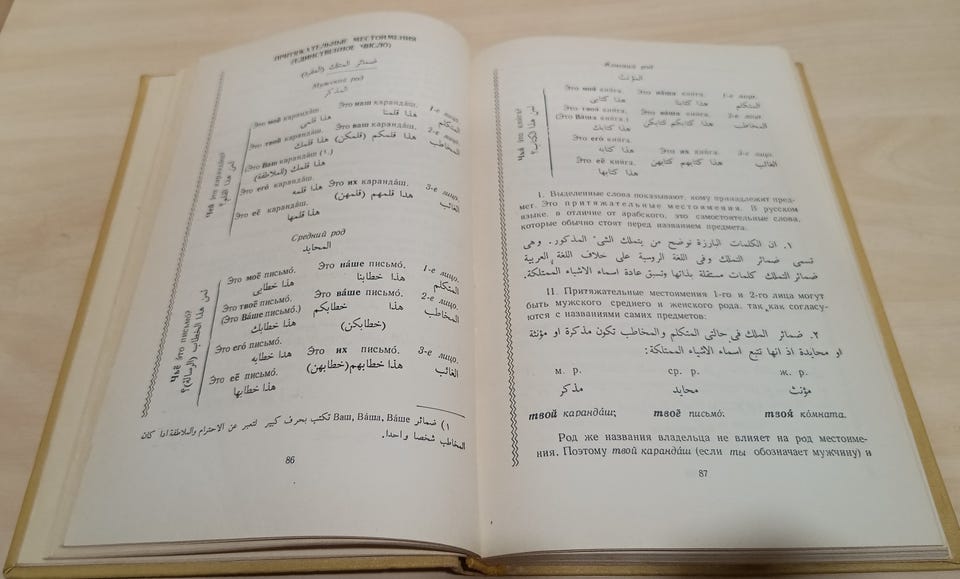 ПРИТЯЖАТЕЛЬНЫЕ МЕСТОИМЕНИЯ
(ЕДИНСТВЕННОЕ ЧИСЛО)
ضمائر التملك (المفرد)
Мужской род
المذكر
Чей это карандаш?
لمن هذا القلم؟
Это мой карандаш
Это наш карандаш.
1-е лицо.
هذا قلمى
هذا قلمنا
المتكلم
Это твой карандаш.
Это ваш карандаш.
2-е лицо.
هذا قلمك
هذا قلمكم (قلمكن)
المخاطب
(Это Ваш карандаш (1.)
هذا قلمك (الملاطفة)
Это егó карандáш.
Это их карандáш.
3-е лицо.
هذا قلمه
هذا قلمهم (قلمهن)
الغائب
Это её карандáш.
هذا قلمها
Средний род
المحايد
Чьё э́то письмо́?
لمن هذا الخطاب (الرسالة)؟
Это моё письмó.
Это нáше письмо.
1-е лицо.
هذا خطابى
هذا خطابنا
المتكلم
Это твоё письмó.
Это вáше письмо.
2-е лицо.
(Это Вáше письмó.)
هذا خطابكم
المخاطب
هذا خطابك
(خطابكن)
Это егó письмó.
Это их письмó.
3-е лицо.
هذا خطابه
هذا خطابهم (خطابهن)
الغائب
Это её письмó.
هذا خطابها
١) ضمائر Ваш, Вáша, Вáше تكتب بحرف كبير لتعبر عن الاحترام والملاطفة اذا كان
المخاطب شخصا واحدا.
86
Женский род
المؤنث
Чья это кни́га?
لمن هذا الكتاب؟
Это моя́ кни́га.
Это нáша кни́га.
1-е лицо.
هذا كتابى
هذا كتابنا
المتكلم
Это твоя́ кни́га.
Это вáша кни́га.
2-е лицо.
(Это Вáша кни́га.)
هذا كتابكم كتابكن
المخاطب
هذا كتابك
Это егó кни́га.
هذا كتابه
Это их кни́га.
3-е лицо.
Это её кни́га.
هذا كتابهم كتابهن
الغائب
هذا كتابها
I. Выделенные слова показывают, кому принадлежит пред-
мет. Это притяжательные местоимения. В русском
языке, в отличие от арабского, это самостоятельные слова,
которые обычно стоят перед названием предмета.
١. ان الكلمات البارزة توضح من يتملك الشئ المذكور. وهى
تسمى ضمائر التملك وفى اللغة الروسية على خلاف اللغة العربية
ضمائر التملك كلمات مستقلة بذاتها وتسبق عادة اسماء الاشياء الممتلكة.
II. Притяжательные местоимения 1-го и 2-го лица могут
быть мужского среднего и женского рода, так как согласу-
ются с названиями самих предметов:
٢. ضمائر الملك فى حالتى المتكلم والمخاطب تكون مذكرة او مؤنثة
او محايدة اذ انها تتبع اسماء الاشياء الممتلكة:
м. р. ср. р. ж. р.
مذكر محايد مؤنث
твой карандáш; твоё письмó; твоя́ кóмната.
Род же названия владельца не влияет на род местоиме-
ния. Поэтому твой карандáш (если ты обозначает мужчину) и
87